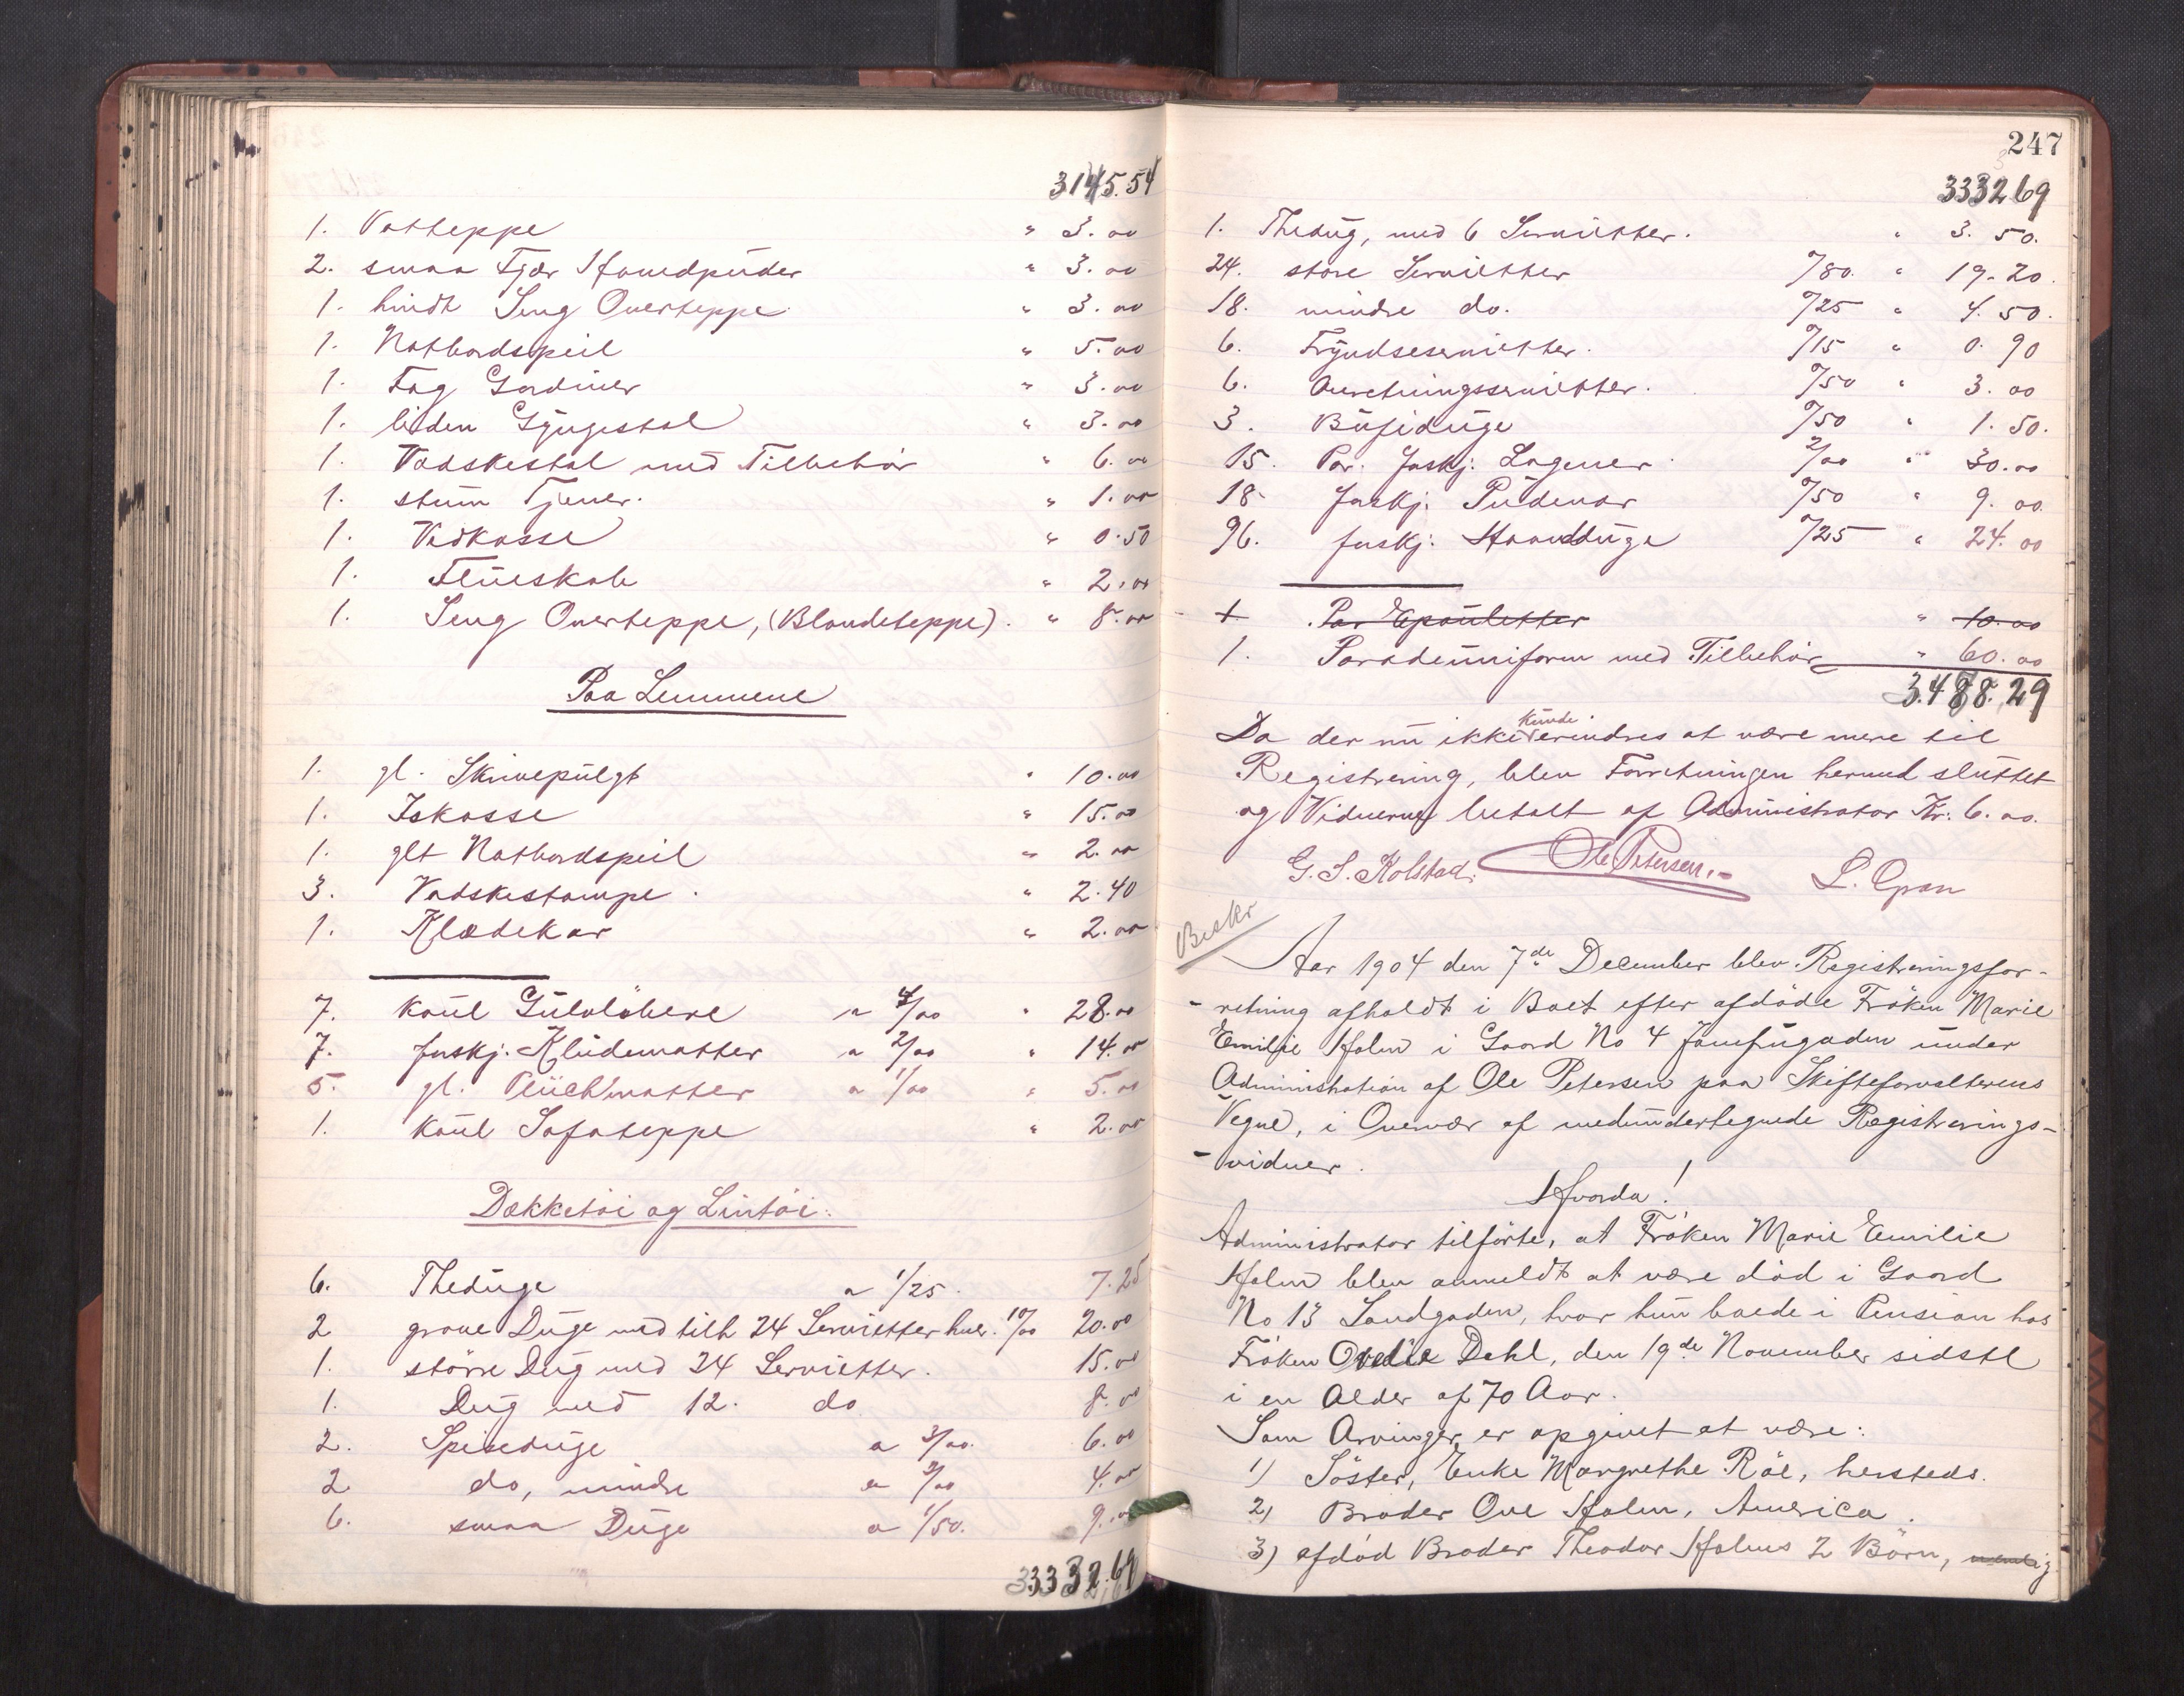 3145.54
1. Vatteppe " 3.00
2. smaa Fjær Hovedpuder " 3.00
1. hvidt Seng Overteppe " 3.00
1. Natbordspeil " 5.00
1. Fag Gardiner " 3.00
1. liden Gyngestol " 3.00
1. Vadskestol med Tilbehör " 6.00
1. stum Tjener. " 1.00
1. Vedkasse " 0.50
1. Flueskab " 2.00
1. Seng Overteppe, (Blondeteppe). " 8.00
Paa Lemmene
1. gl. Skrivepulgt " 10.00
1. Iskasse " 15.00
1. glt Natbordspeil " 2.00
3. Vadskestampe. " 2.40
1. Klædekar " 2.00
7. Kaul Gulvlöbere a 4/00 " 28.00
7. forskj. Kludematter a 2/00 " 14.00
5. gl. Plüchmatter a 1/00 " 5.00
1. Kaul Sofateppe " 2.00
Dækketöi og Lintöi:
6. Theduge a 1/25. 7.25
2 grove Duge med tilh 24 Servietter hver. 10/00 20.00
1. större Dug med 24 Servietter. 15.00
1. Dug med 12. do 8.00
2. Spiseduge a 3/00. 6.00
2 do, mindre a 2/00 4.00
6. smaa Duge a 1/50. 9.00
3332.69
247
333269
1. Thedug, med 6 Servietter. " 3.50.
24. store Servietter 0/80. " 19.20.
18. mindre do. 0/25 " 4.50.
6. Frugtservietter. 0/15 " 0.90
6. Anretningsservietter. 0/50 " 3.00
3. Bufféduge 0/50 " 1.50.
15. Par. forskj. Lagener 2/00 " 30.00
18. forskj. Pudevar 0/50 " 9.00.
96. forskj. Haandduge 0/25 " 24.00
1 Par Epauletter " 10.00
1. Paradeuniform med Tilbehör " 60.00
3.488.29
Da der nu ikke kunde erindres at være mere til
Registrering, blev Forretningen hermed sluttet
og Vidnerne betalt af Administrator Kr. 6.00.
G. S. Kolstad. Ole Petersen.- L. Gran
Beskr
Aar 1904 den 7de December blev Registreringsfor-
-retning afholdt i Boet efter afdöde Fröken Marie
Emilie Holm i Gaard No 4 Jomfrugaden under
Administration af Ole Petersen paa Skifteforvalterens
Vegne, i Overvær af medundertegnede Registrerings-
-vidner.
Hvorda!
Administrator tilförte, at Fröken Marie Emilie
Holm blev anmeldt at være död i Gaard
No 13 Sandgaden, hvor hun boede i Pension hos
Fröken Ovelie Dahl, den 19de November sidstl
i en Alder af 70 Aar.
Som Arvinger er opgivet at være:
1) Söster, Enke Margrethe Röe, hersteds.
2) Broder Ove Holm, America.
3) afdöd Broder Theodor Holms 2 Börn, nemlig